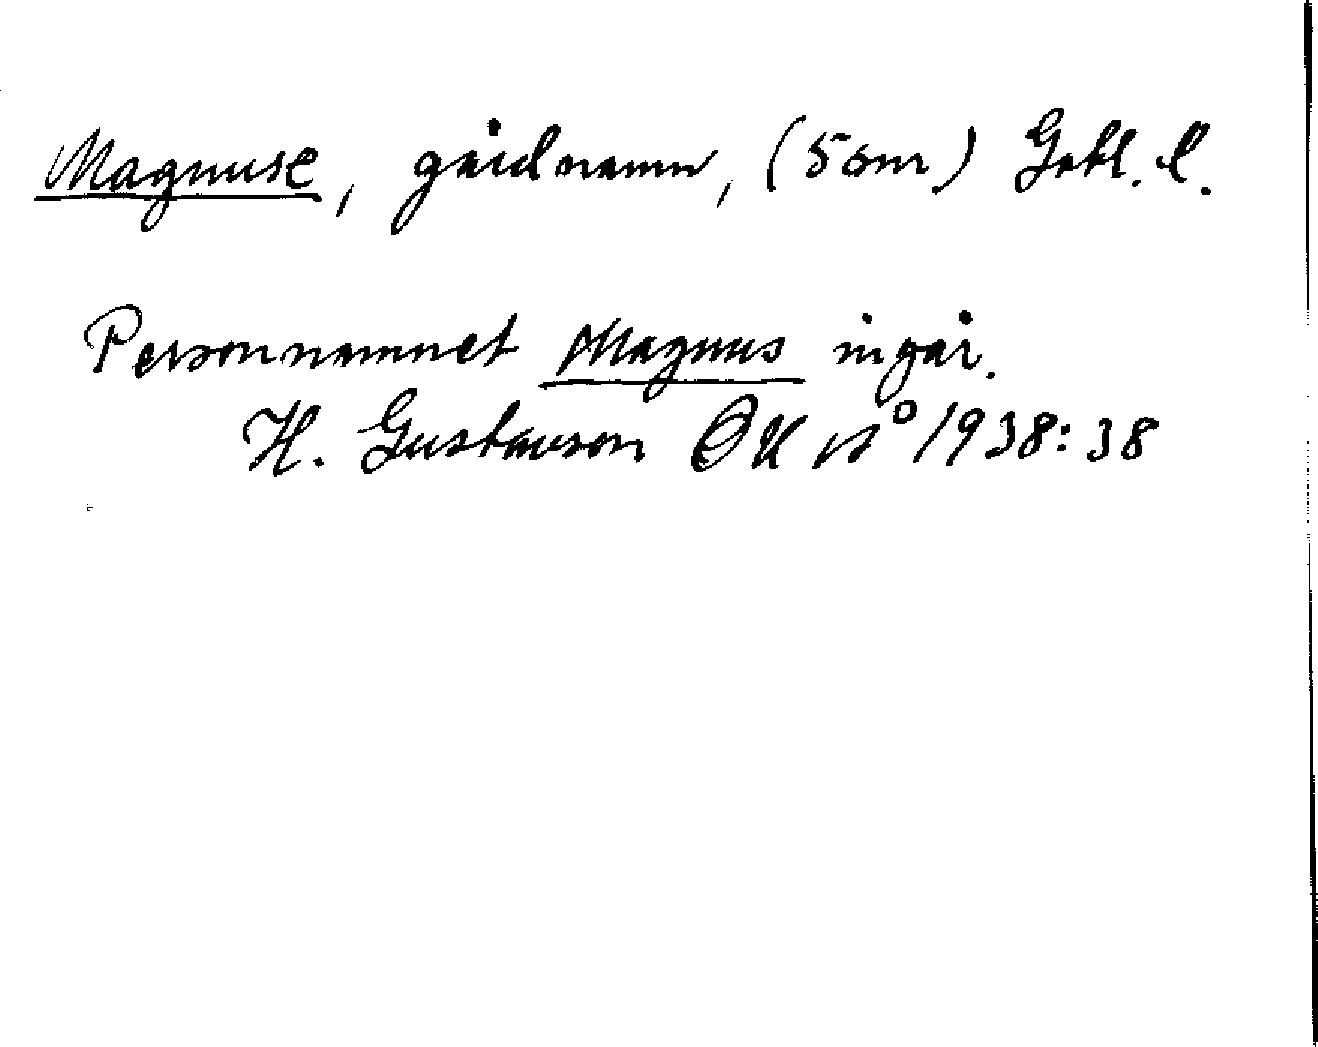 Magnuse, gårdnamn, (5 om) Gotl. l.
Personnamnet Magnus ingår.
H. Gustavson OK no 1938:38